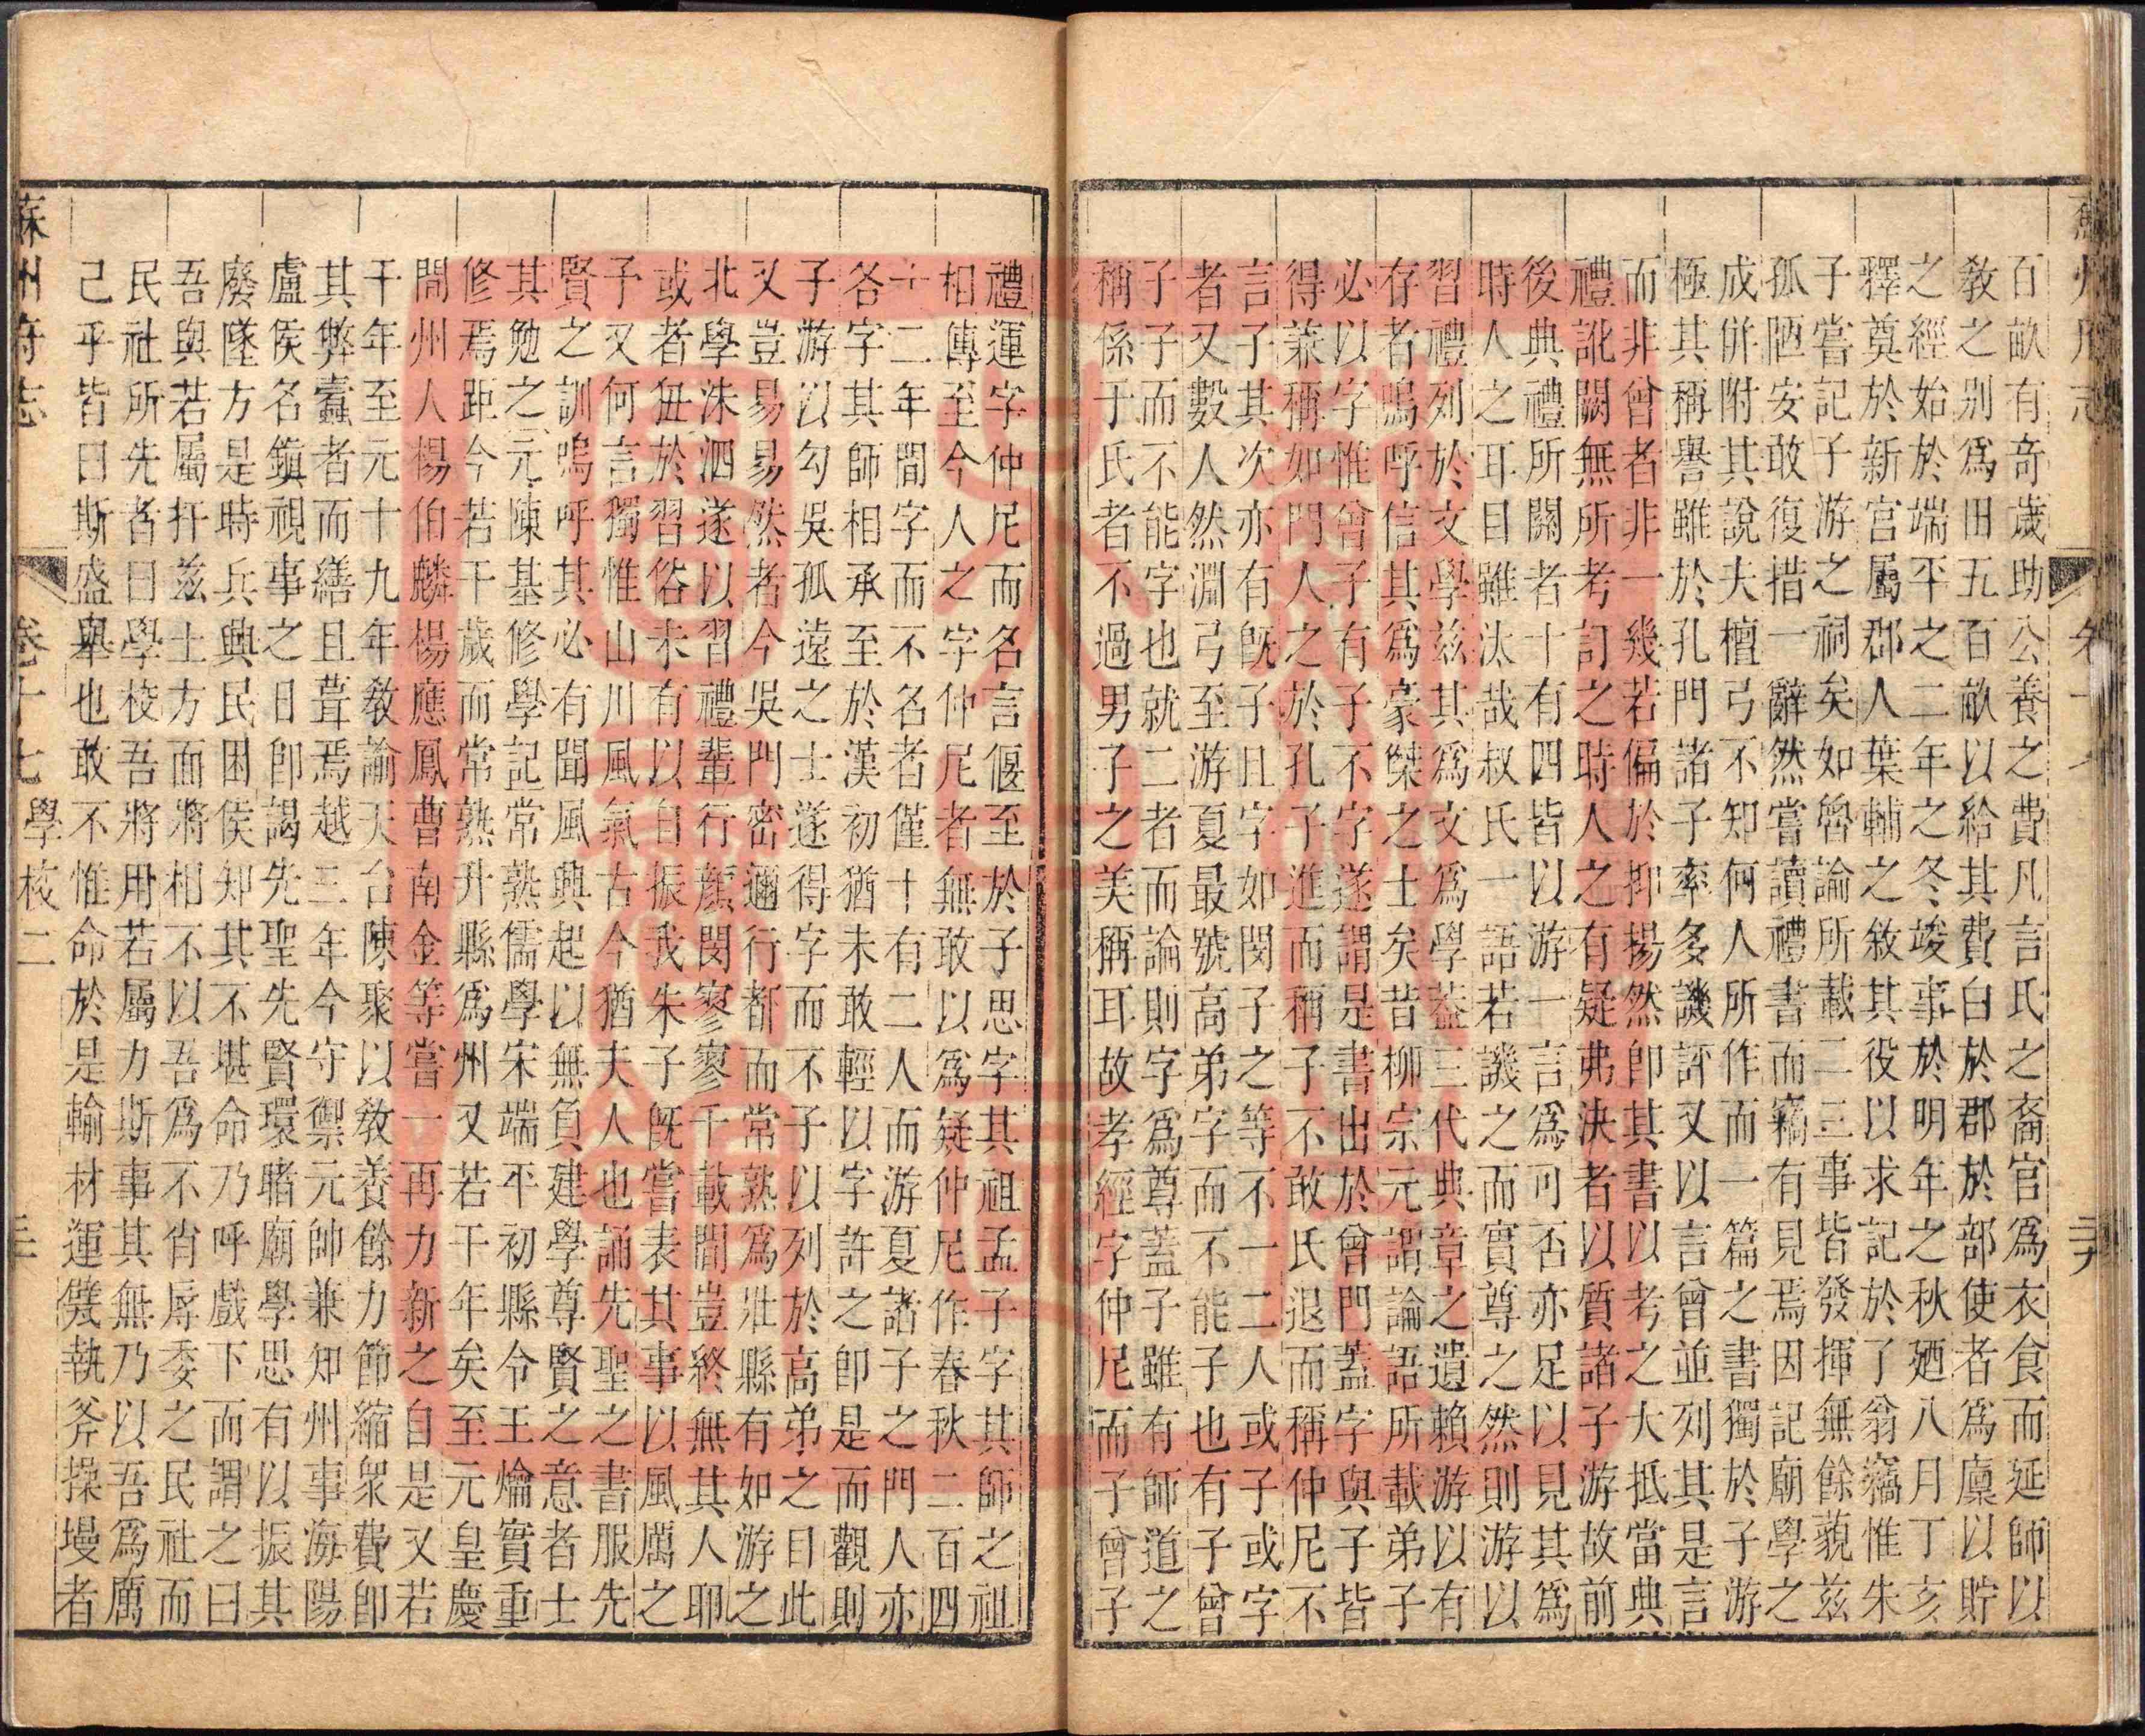 百畝有奇歲助公養之費凡言氏之裔官爲衣食而延師以
敎之别爲田五百畝以給其費白於郡於部使者爲廩以貯
之經始於端平之二年之冬竣事於明年之秋廼八月丁亥
釋奠於新宫屬郡人葉輔之敘其役以求記於了翁竊惟朱
子嘗記子游之祠矣如魯論所載二三事皆發揮無餘藐兹
孤陋安敢復措一辭然嘗讀禮書而竊有見焉因記廟學之
成併附其說夫檀弓不知何人所作而一篇之書獨於子游
極其稱譽雖於孔門諸子率多譏評又以言曾並列其是言
而非曾者非一幾若偏於抑揚然卽其書以考之大抵當典
禮訛闕無所考訂之時人之有疑弗決者以質諸子游故前
後典禮所關者十有四皆以游一言爲可否亦足以見其爲
時人之耳目雖汰哉叔氏一語若譏之而實尊之然則游以
習禮列於文學兹其爲文爲學葢三代典章之遺賴游以有
存者嗚呼信其爲豪傑之士矣昔柳宗元謂論語所載弟子
必以字惟曾子有子不字遂謂是書出於曾門蓋字與子皆
得兼稱如門人之於孔子進而稱子不敢氏退而稱仲尼不
言子其次亦有旣子且字如閔子之等不一二人或子或字
者又數人然淵弓至游夏最號高弟字而不能子也有子曾
子子而不能字也就二者而論則字爲尊蓋子雖有師道之
稱係于氏者不過男子之美稱耳故孝經字仲尼而子曾子
禮運字仲尼而名言偃至於子思字其祖孟子字其師之祖
相傳至今人之字仲尼者無敢以爲疑仲尼作春秋二百四
十二年間字而不名者僅十有二人而游夏諸子之門人亦
各字其師相承至於漢初猶未敢輕以字許之卽是而觀則
子游以勾吳孤遠之士遂得字而不子以列於高弟之目此
又豈易易然者今吳門密邇行都而常熟爲壯縣有如游之
北學洙泗遂以習禮輩行顏閔寥寥千載間豈終無其人耶
或者毋於習俗未有以自振我朱子旣嘗表其事以風厲之
予又何言獨惟山川風氣古今猶夫人也誦先聖之書服先
賢之訓嗚呼其必有聞風興起以無負建學尊賢之意者士
其勉之元陳基修學記常熟儒學宋端平初縣令王爚實重
修焉距今若干歲而常熟升縣爲州又若干年矣至元皇慶
間州人楊伯麟楊應鳳曹南金等嘗一再力新之自是又若
干年至元十九年敎諭天台陳聚以敎養餘力節縮衆費卽
其弊蠹者而繕且葺焉越三年今守禦元帥兼知州事海陽
盧侯名鎭視事之日卽謁先聖先賢環睹廟學思有以振其
廢墜方是時兵興民困侯知其不堪命乃呼戲下而謂之曰
吾與若屬扞兹土方面將相不以吾爲不肖辱委之民社而
民社所先者曰學校吾將用若屬力斯事其無乃以吾爲厲
己乎皆曰斯盛舉也敢不惟命於是輸材運甓執斧操墁者
蘇州府志
卷十七 學校二